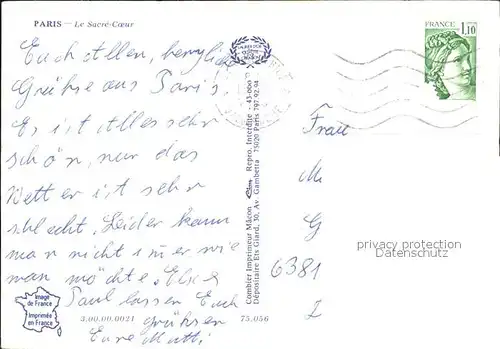 PARIS – Le Sacré-Cœur
Euch Allen, herzliche
Grühse aus Paris.
Es ist Alles sehr
schön, nur das
Wetter ist sehr
schlecht. Leider kann
man nicht immer wie
man möchte.
Paul lassen Euch
grühsen
Eure Mutti
Image
de France
Imprimée
en France
3.00.00.0021 75.056
Combier Imprimeur Mâcon Repro. Interdite - 43-000
Dépositaire Ets Giard, 30, Av. Gambetta 75020 Paris 797.92.94
FRANCE
1,10
Frau
M
G
6381
Z
privacy protection
Datenschutz